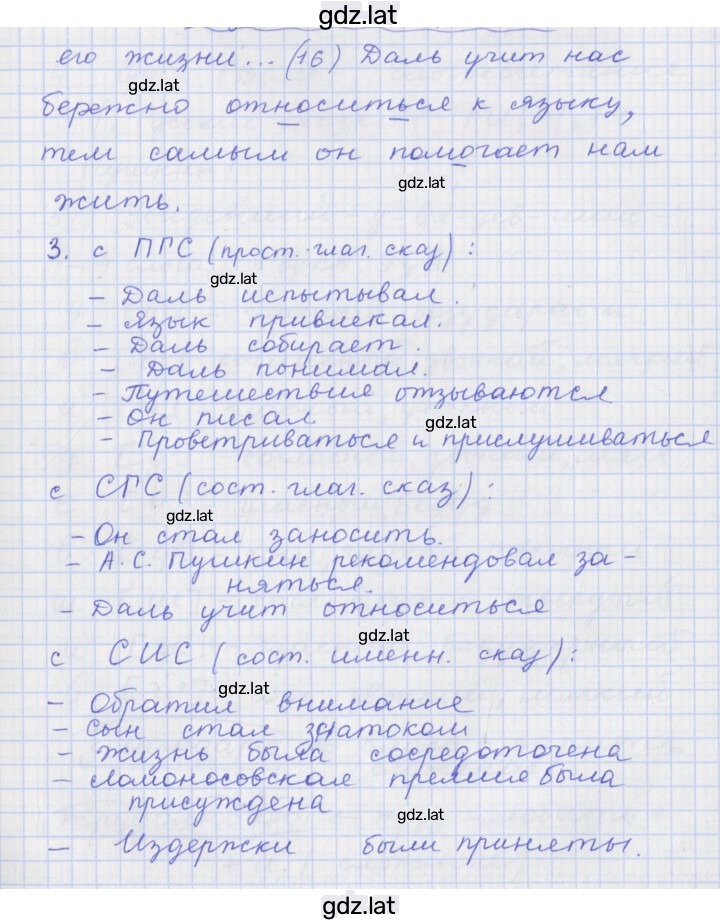 gdz.lat
его жизни... (16) Даль учит нас
gdz.lat
бережно относиться к языку,
тем самым он помогает нам
gdz.lat
жить.
3. с ПГС (прост. глаг. сказ) :
gdz.lat
– Даль испытывал.
– Язык привлекал.
– Даль собирает.
– Даль понимал.
– Путешествия отзываются
– Он писал
gdz.lat
– Проветриваться и прислушиваться
с СГС (сост. глаг. сказ) :
gdz.lat
– Он стал заносить.
– А.С. Пушкин рекомендовал за-
няться.
– Даль учит относиться
gdz.lat
с СИС (сост. именн. сказ) :
gdz.lat
– Обратил внимание
– Сын стал знатоком
– Жизнь была сосредоточена
– Ломоносовская премия была
присуждена
gdz.lat
– Издержки были приняты.
gdz.lat